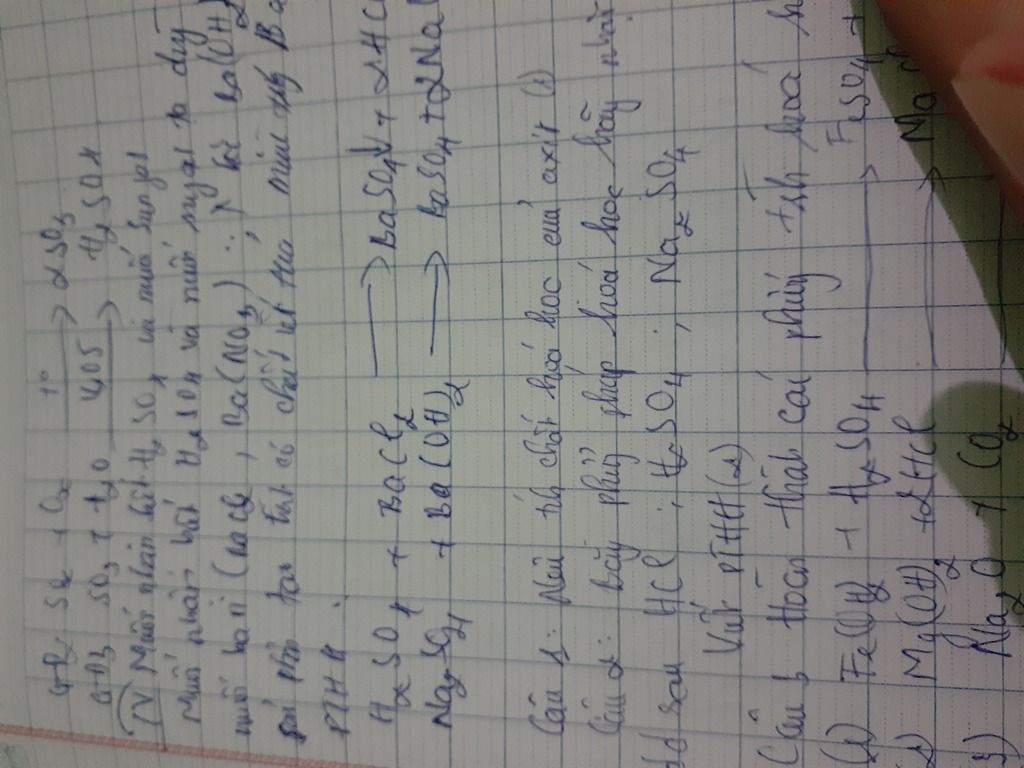 SO2 + O2 t° → 2SO3
SO3 + H2O → H2SO4
IV Muốn nhận biết H2SO4 và muối sunfat
nhận biết H2SO4 và muối sunfat ta
muối bari (BaCl2, Ba(NO3)2 Ba(OH)2
chất kết
PTHH:
H2SO4 + BaCl2 → BaSO4↓ + 2HCl
Na2SO4 + Ba(OH)2 → BaSO4 + 2Na
Câu 1: Nêu tính chất hoá học của axit (1)
Câu 2: Bằng phương pháp hoá học hãy nhận
dd sau HCl; H2SO4; Na2SO4
Viết PTHH (2)
Câu 3 Hoàn thành các phương trình hoá
1) Fe(OH)2 + H2SO4 → FeSO4 +
2) Mg(OH)2 + 2HCl → Mg
3) Na2O + CO2 →